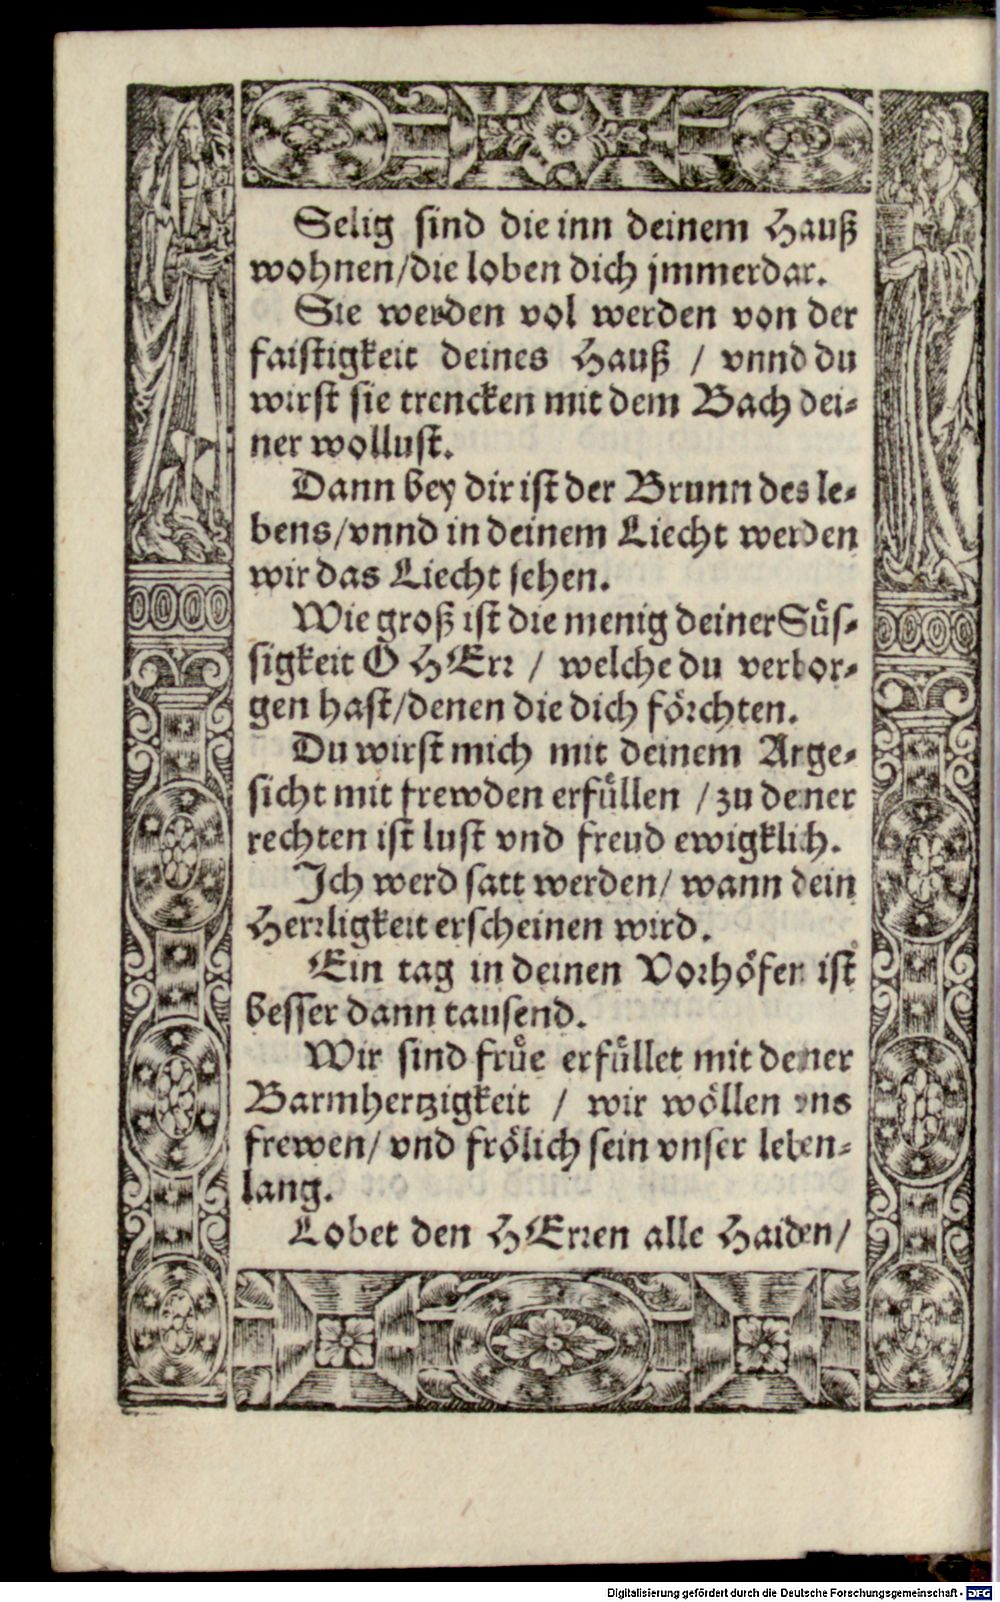 Selig sind die inn deinem Hauß
wohnen/die loben dich jmmerdar.
Sie werden vol werden von der
faistigkeit deines Hauß / vnnd du
wirst sie trencken mit dem Bach dei-
ner wollust.
Dann bey dir ist der Brunn des le-
bens/vnnd in deinem Liecht werden
wir das Liecht sehen.
Wie groß ist die menig deiner Süs-
sigkeit O HErr / welche du verbor-
gen hast/denen die dich förchten.
Du wirst mich mit deinem Ange-
sicht mit frewden erfüllen / zu deiner
rechten ist lust vnd freud ewigklich.
Ich werd satt werden/ wann dein
Herrligkeit erscheinen wird.
Ein tag in deinen Vorhöfen ist
besser dann tausend.
Wir sind früe erfüllet mit deiner
Barmhertzigkeit / wir wöllen vns
frewen/ vnd frölich sein vnser leben-
lang.
Lobet den HErren alle Haiden/
Digitalisierung gefördert durch die Deutsche Forschungsgemeinschaft - DFG